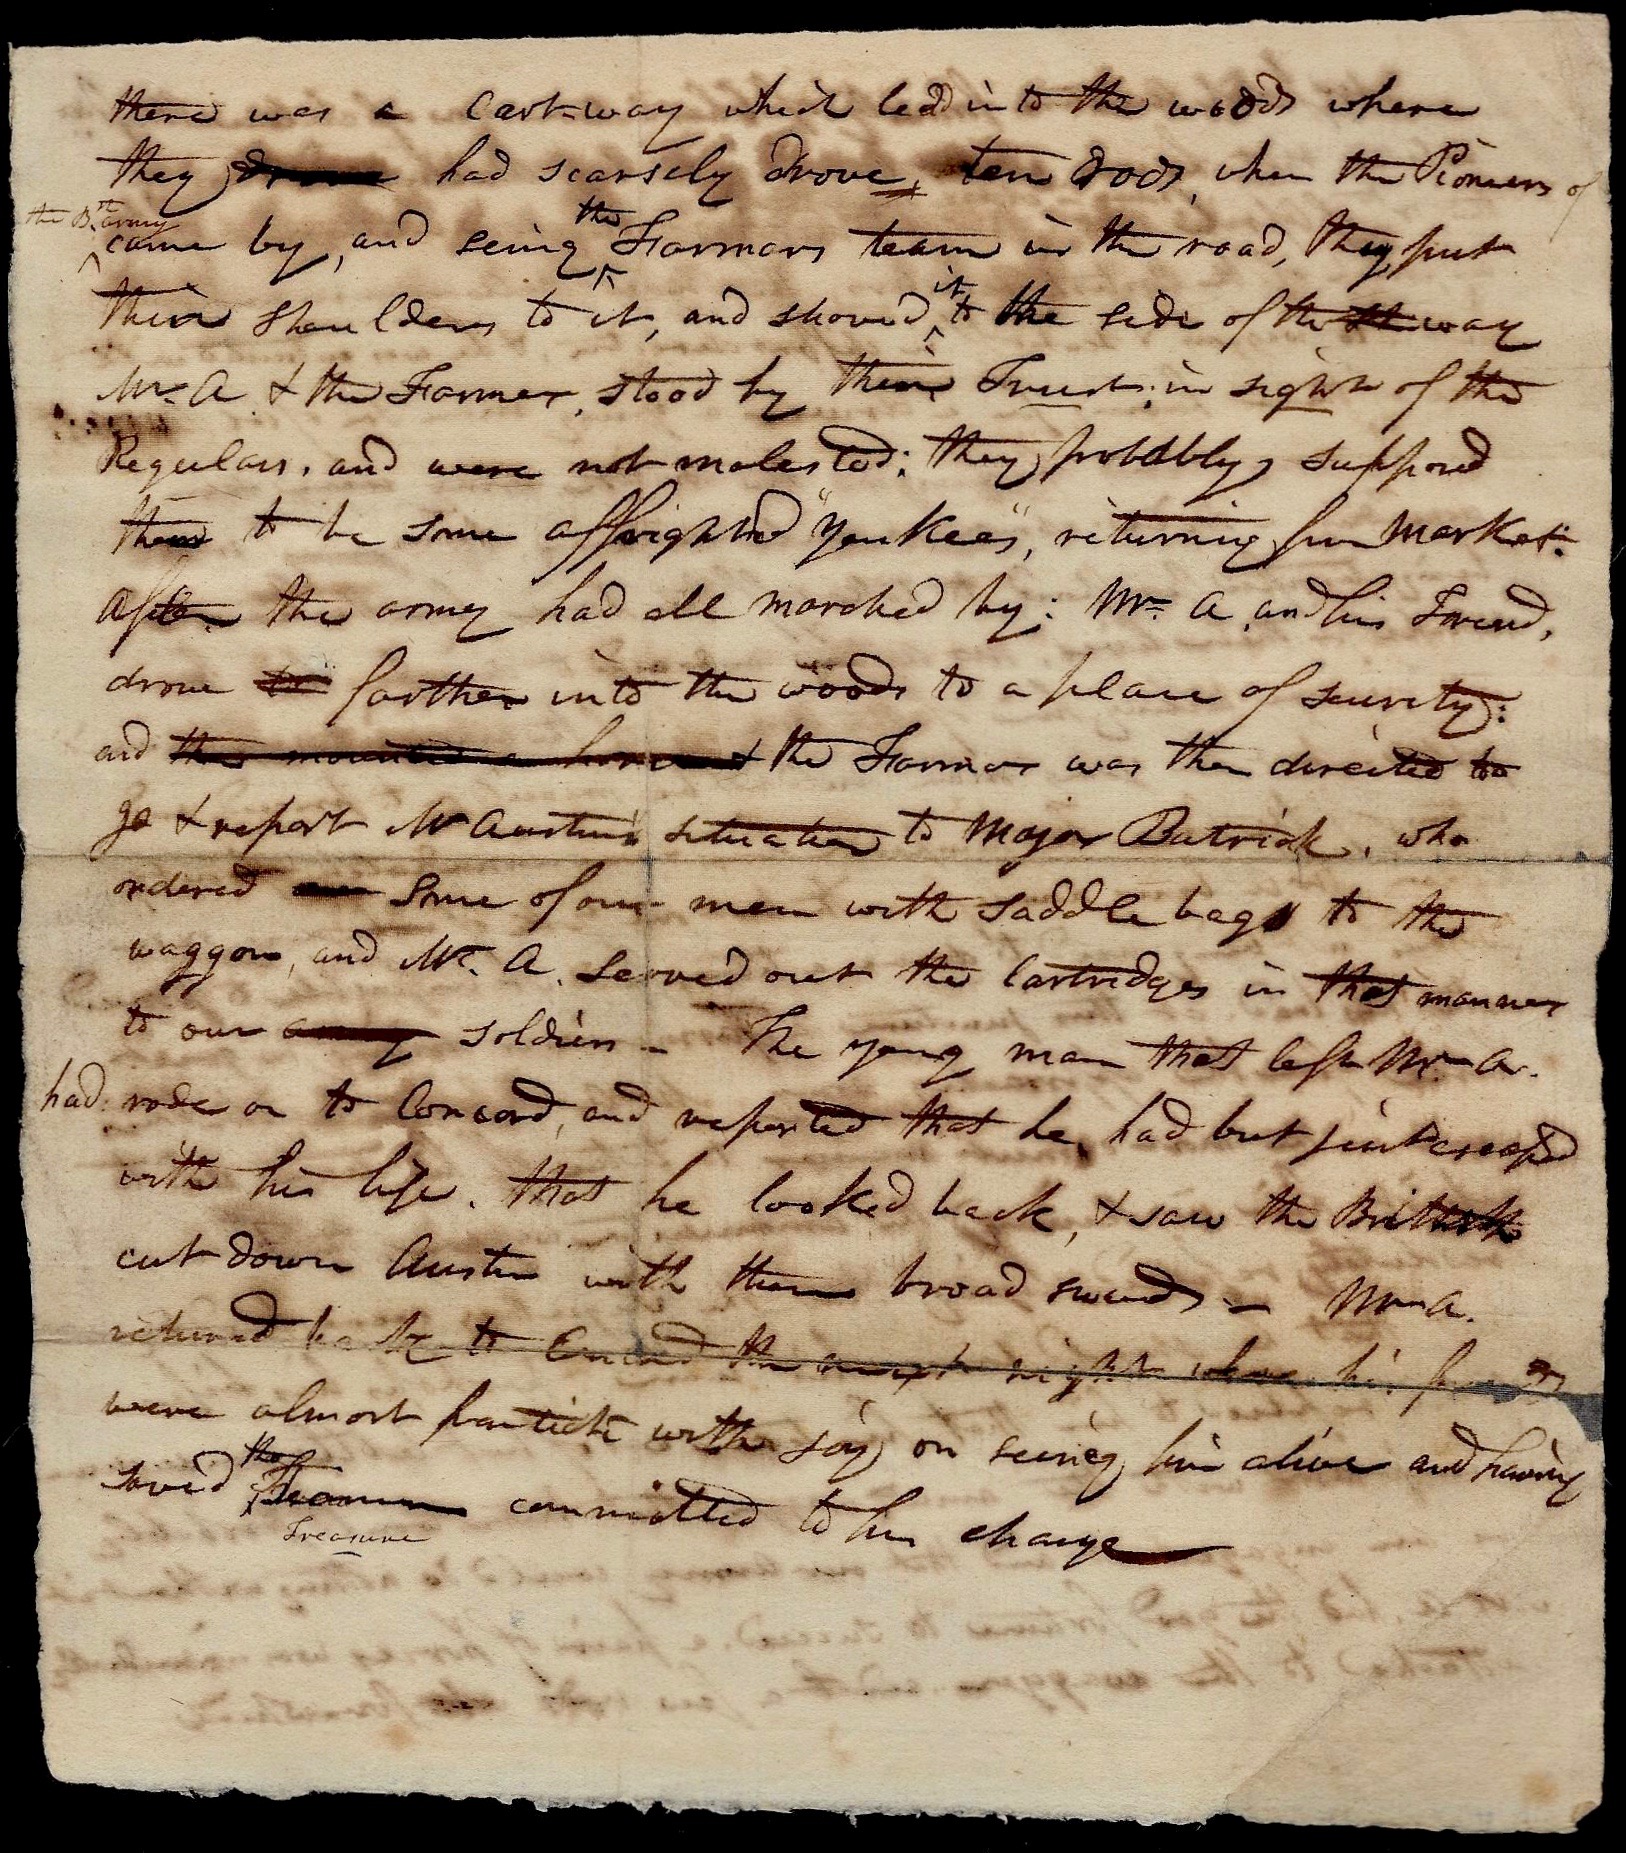 there was a Cart-way which ledd into the woods where
they drove had scarsely drove, ten Rods, when the Pioneers of
the B. army came by, and seing the Farmers team in the road, they put
their shoulders to it, and shoved it to the side of the way
Mr. A & the Farmer, stood by their Trust, in sight of the
Regulars, and were not molested; they probably supposed
them to be some affrighted "Yankees", returning from Market:
after the army had all marched by: Mr. A and his Friend,
drove to farther into the woods to a place of security:
and then mounted a horse & the Farmer was then directed to
go & report Mr Austin's situation to Major Butrick, who
ordered some of our men with saddle bags to the
waggon, and Mr. A. served out the Cartridges in that manner
to our army soldiers - The young man that left Mr A.
had rode on to Concord, and reported that he had but just escaped
with his life. that he looked back, & saw the British
cut down Austin with their broad swords - Mr A.
returned back to Concord the next night where his friends
were almost frantick with joy on seeing him alive and having
saved the Treasure committed to his charge